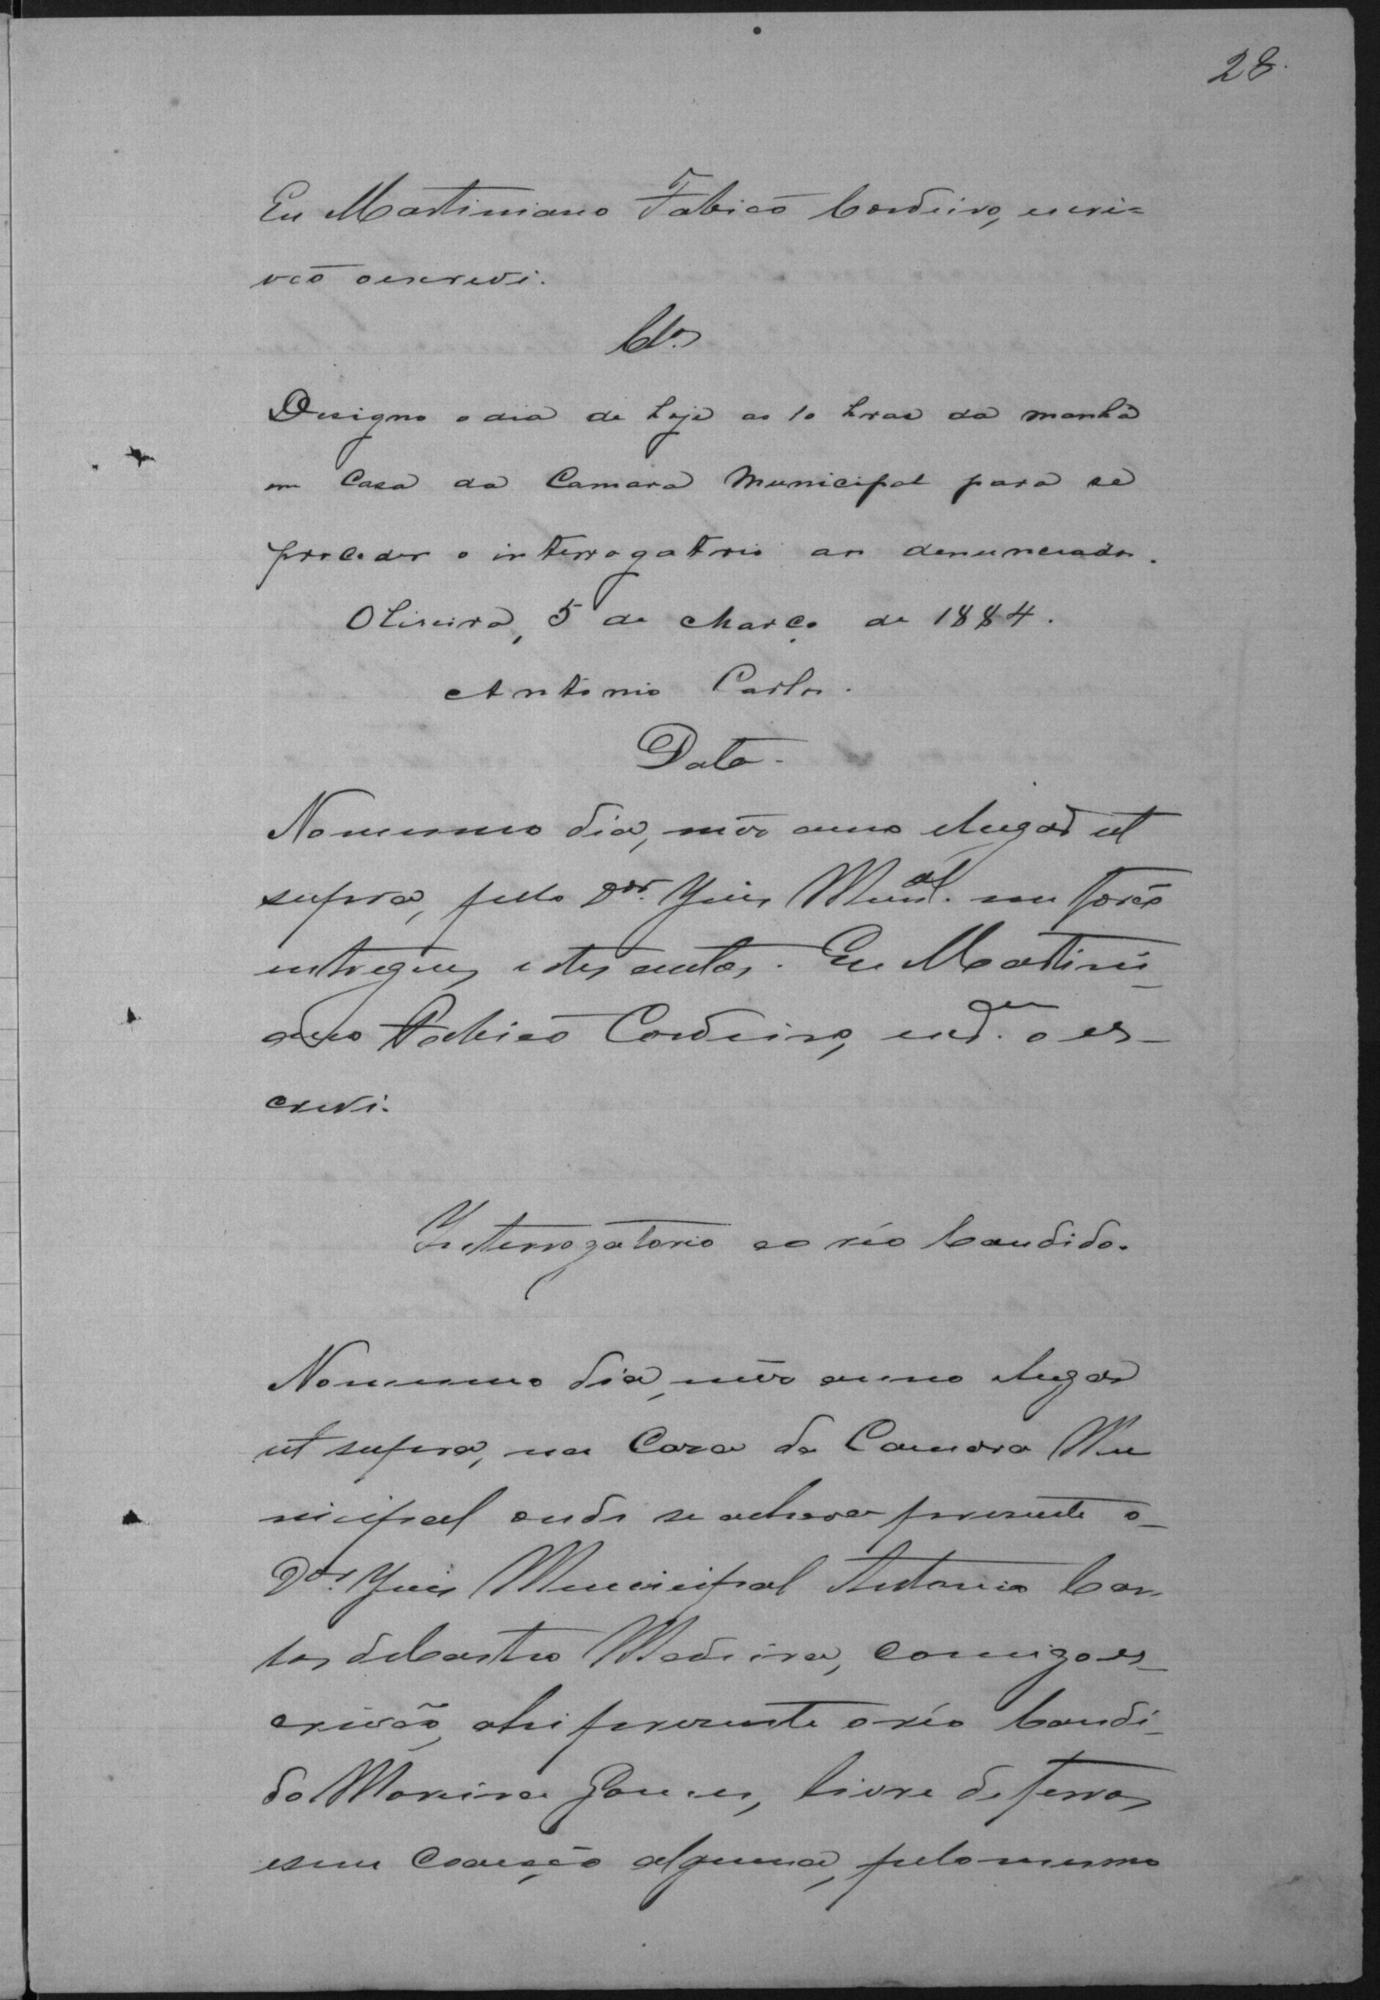 28.
Eu Martiniano Fabião Cordeiro, escri=
vão o escrevi.
Cls
Designo o dia de hoje as 10 horas da manhã
em Casa da Camara Municipal para se
proceder o interrogatorio ao denunciado.
Oliveira, 5 de Março de 1884.
Antonio Carlos.
Data.
No mesmo dia, mês anno e lugar ut
supra, pelo Dor. Juiz Munal. me forão
entregues estes autos. Eu Martini-
ano Fabião Cordeiro, o es-
crevi.
Interrogatorio ao réo Candido.
No mesmo dia, mês anno e lugar
ut supra, na Caza da Camara Mu
nicipal onde se achava presente o
Dor. Juiz Municipal Antonio Car
los de Castro Madeira, comigo es-
crivão, ahi presente o réo Candi-
do Moreira Gomes, livre de ferros
e sem coacção alguma, pelo mesmo